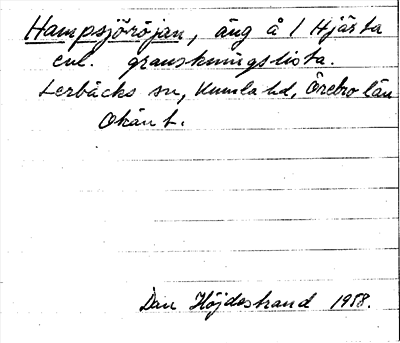 Hampsjöröjan, äng å 1 Hjärta
enl. granskningslista.
Lerbäcks sn, Kumla hd, Örebro län
Okänt.
Dan Höjdestrand 1988.